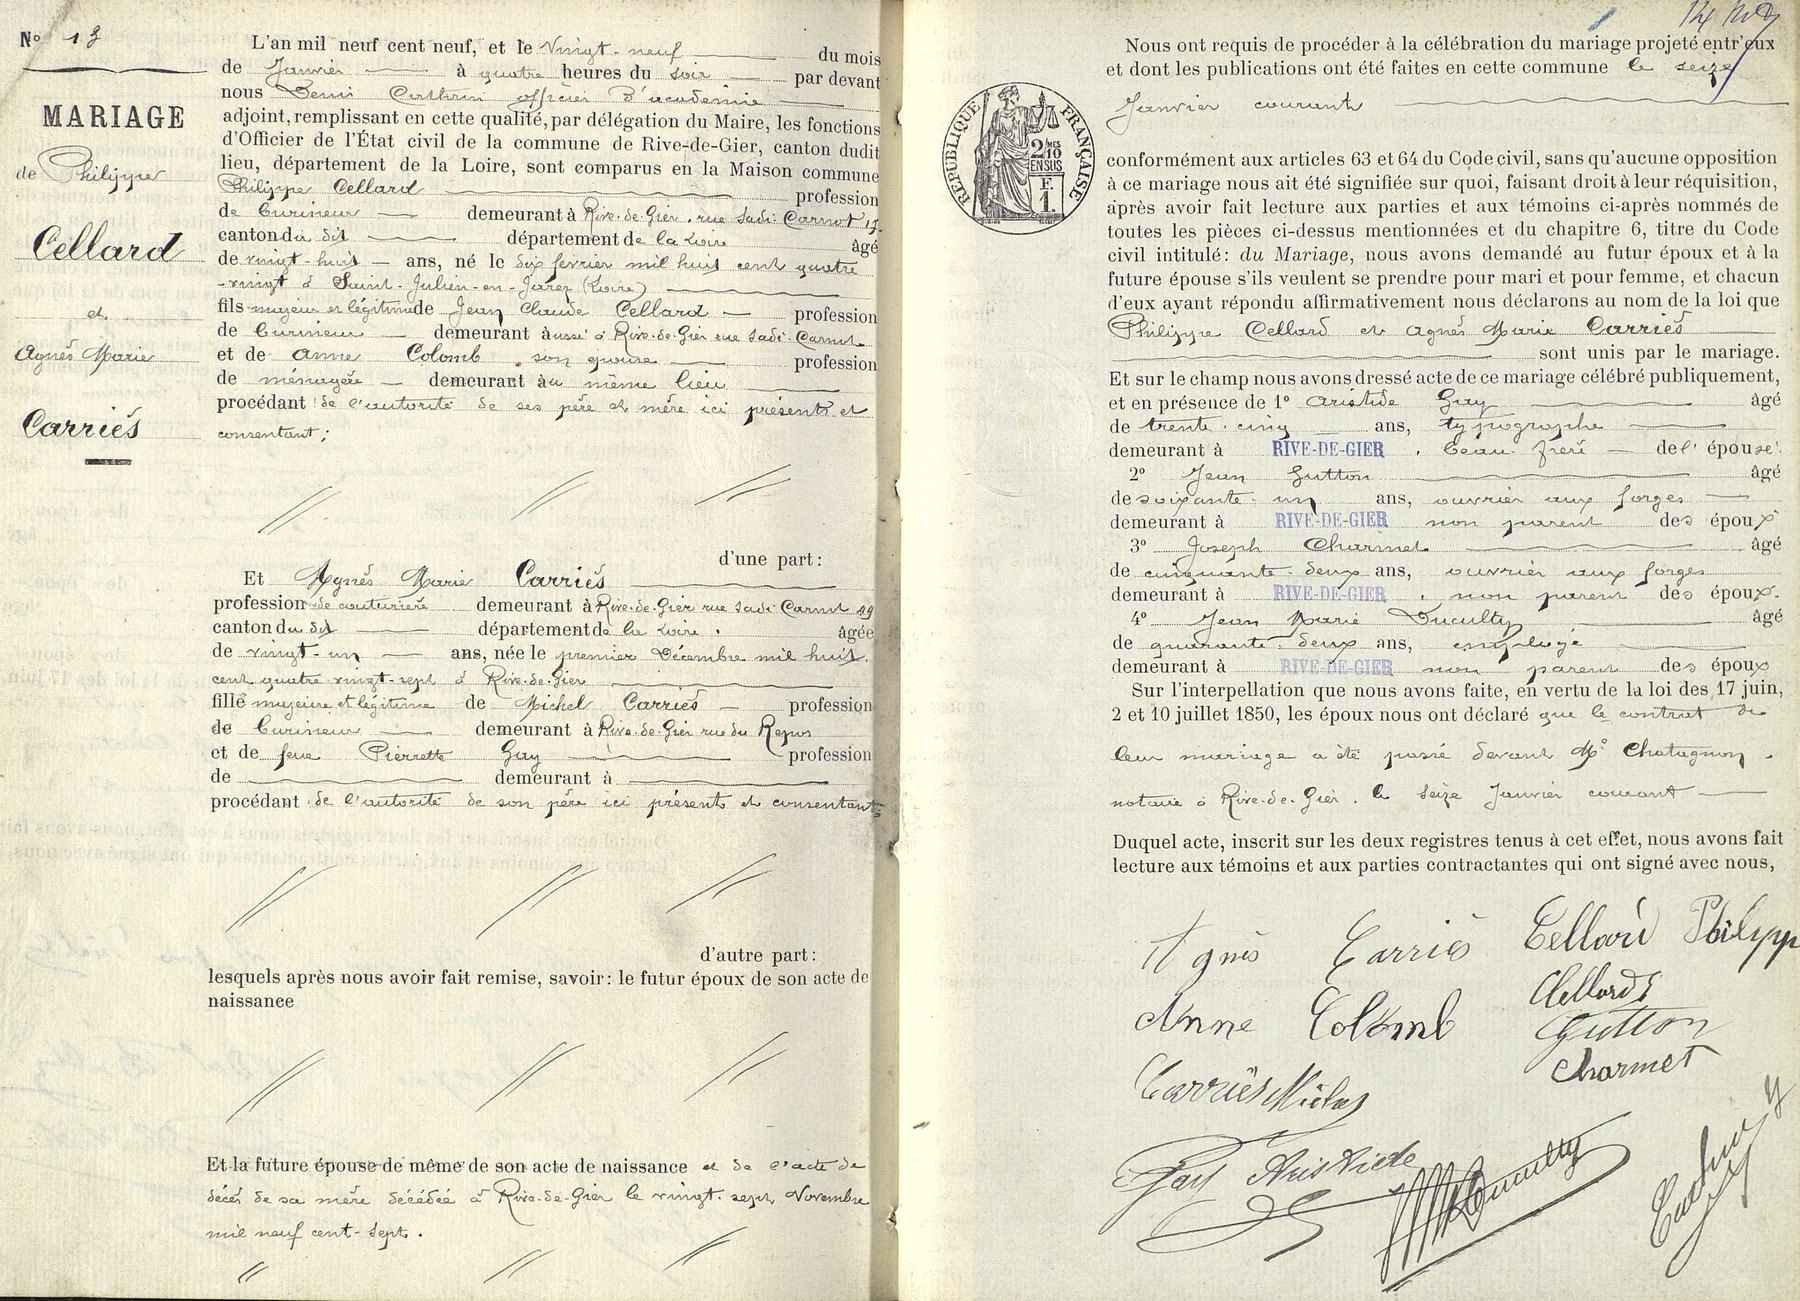 N° 13
MARIAGE
de Philippe
Cellard
et
Agnès Marie
Carriès
L'an mil neuf cent neuf, et le vingt-neuf du mois
de Janvier à quatre heures du soir par devant
nous Denis Cathrin officier d'académie
adjoint, remplissant en cette qualité, par délégation du Maire, les fonctions
d'Officier de l'État civil de la commune de Rive-de-Gier, canton dudit
lieu, département de la Loire, sont comparus en la Maison commune
Philippe Cellard profession
de Curineur demeurant à Rive-de-Gier, rue Sadi-Carnot 17
canton du dit département de la Loire âgé
de vingt-huit ans, né le dix février mil huit cent quatre
-vingt à Saint-Julien-en-Jarez (Loire)
fils majeur et légitime de Jean Claude Cellard profession
de Curineur demeurant aussi à Rive-de-Gier rue Sadi-Carnot
et de Anne Colomb, son épouse profession
de ménagère demeurant au même lieu
procédant de l'autorité de ses père et mère ici présents et
consentant;
d'une part:
Et Agnès Marie Carriès
profession de couturière demeurant à Rive-de-Gier rue Sadi-Carnot 49
canton du dit département de la Loire. âgée
de vingt-un ans, née le premier Décembre mil huit
cent quatre vingt-sept à Rive-de-Gier
fille majeure et légitime de Michel Carriès profession
de Curineur demeurant à Rive-de-Gier rue du Repos
et de feue Pierrette Guy profession
de demeurant à
procédant de l'autorité de son père ici présent et consentant
d'autre part:
lesquels après nous avoir fait remise, savoir: le futur époux de son acte de
naissance
Et la future épouse de même de son acte de naissance et de l'acte de
décès de sa mère décédée à Rive-de-Gier le vingt-sept Novembre
mil neuf cent-sept.
Nous ont requis de procéder à la célébration du mariage projeté entr'eux
et dont les publications ont été faites en cette commune le seize
Janvier courant
RÉPUBLIQUE FRANÇAISE
2/10
MES
EN SUS
F.
1.
conformément aux articles 63 et 64 du Code civil, sans qu'aucune opposition
à ce mariage nous ait été signifiée sur quoi, faisant droit à leur réquisition,
après avoir fait lecture aux parties et aux témoins ci-après nommés de
toutes les pièces ci-dessus mentionnées et du chapitre 6, titre du Code
civil intitulé: du Mariage, nous avons demandé au futur époux et à la
future épouse s'ils veulent se prendre pour mari et pour femme, et chacun
d'eux ayant répondu affirmativement nous déclarons au nom de la loi que
Philippe Cellard et Agnès Marie Carriès
sont unis par le mariage.
Et sur le champ nous avons dressé acte de ce mariage célébré publiquement,
et en présence de 1° Aristide Guy âgé
de trente-cinq ans, typographe
demeurant à RIVE-DE-GIER, beau-frère de l'épouse.
2° Jean Gutton âgé
de soixante-un ans, ouvrier aux forges
demeurant à RIVE-DE-GIER non parent des époux
3° Joseph Charmet âgé
de cinquante-deux ans, ouvrier aux forges
demeurant à RIVE-DE-GIER, non parent des époux.
4° Jean Marie Ducultty âgé
de quarante-deux ans, employé
demeurant à RIVE-DE-GIER non parent des époux
Sur l'interpellation que nous avons faite, en vertu de la loi des 17 juin,
2 et 10 juillet 1850, les époux nous ont déclaré que le contrat de
leur mariage a été passé devant Me Chatagnon,
notaire à Rive-de-Gier, le seize Janvier courant
Duquel acte, inscrit sur les deux registres tenus à cet effet, nous avons fait
lecture aux témoins et aux parties contractantes qui ont signé avec nous,
Agnès Carriès Cellard Philipp
Cellard
Anne Colomb Gutton
Charmet
Carriès
Guy Aristide